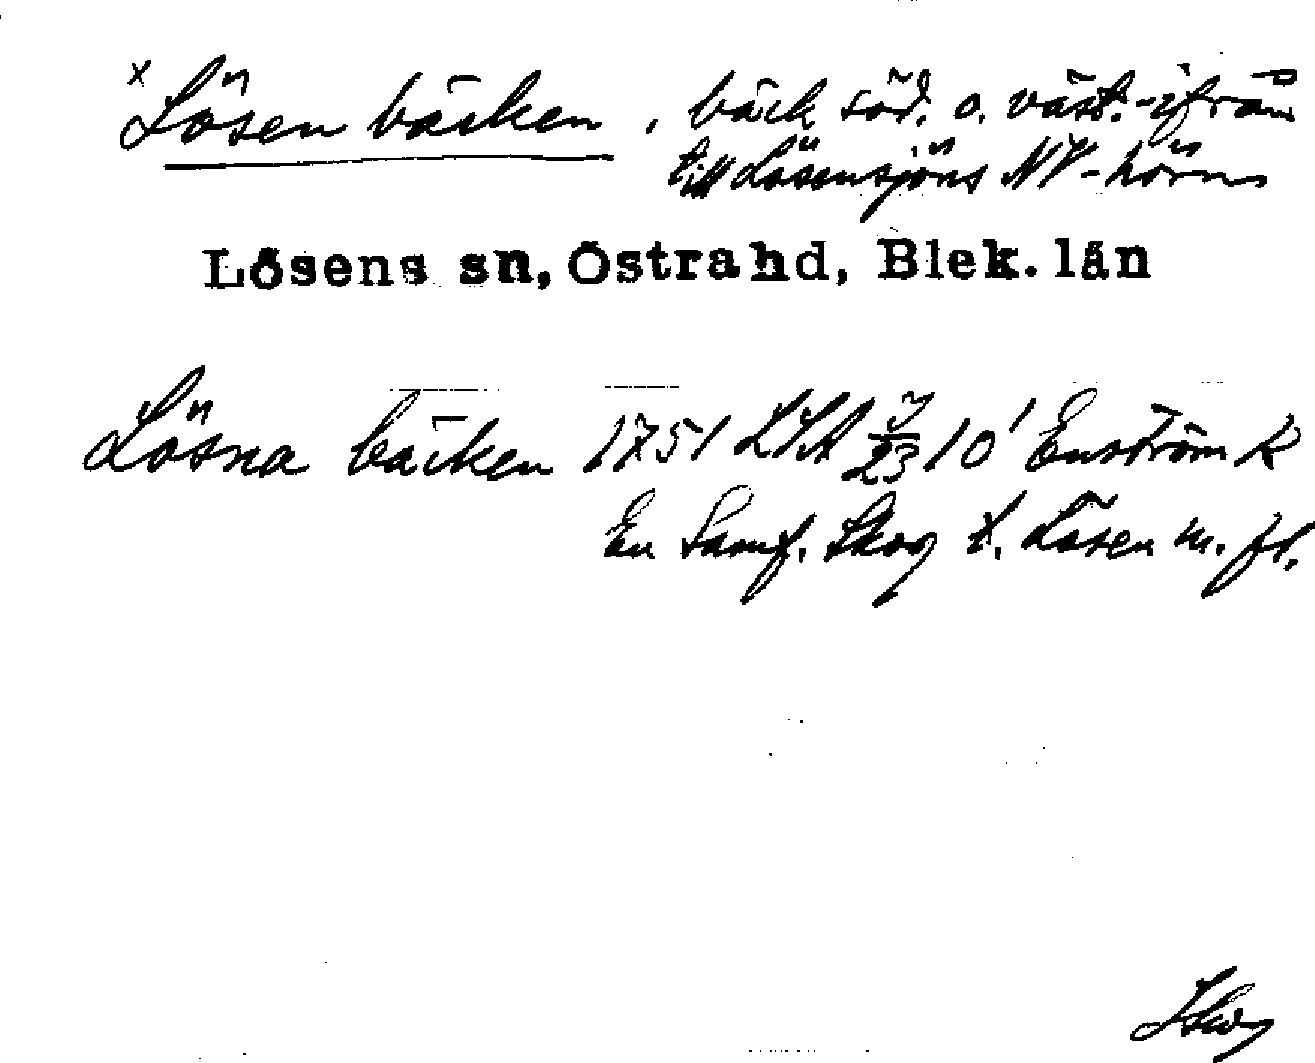 x Lösen bäcken, bäck söd. o. väst.-ifrån
till Lösensjöns NV-hörn
Lösens sn, Östra hd, Blek. län
Lösna bäcken 1751 LSA 23 10¹ Enström K
En Samf. Skog t. Lösen m. fl.